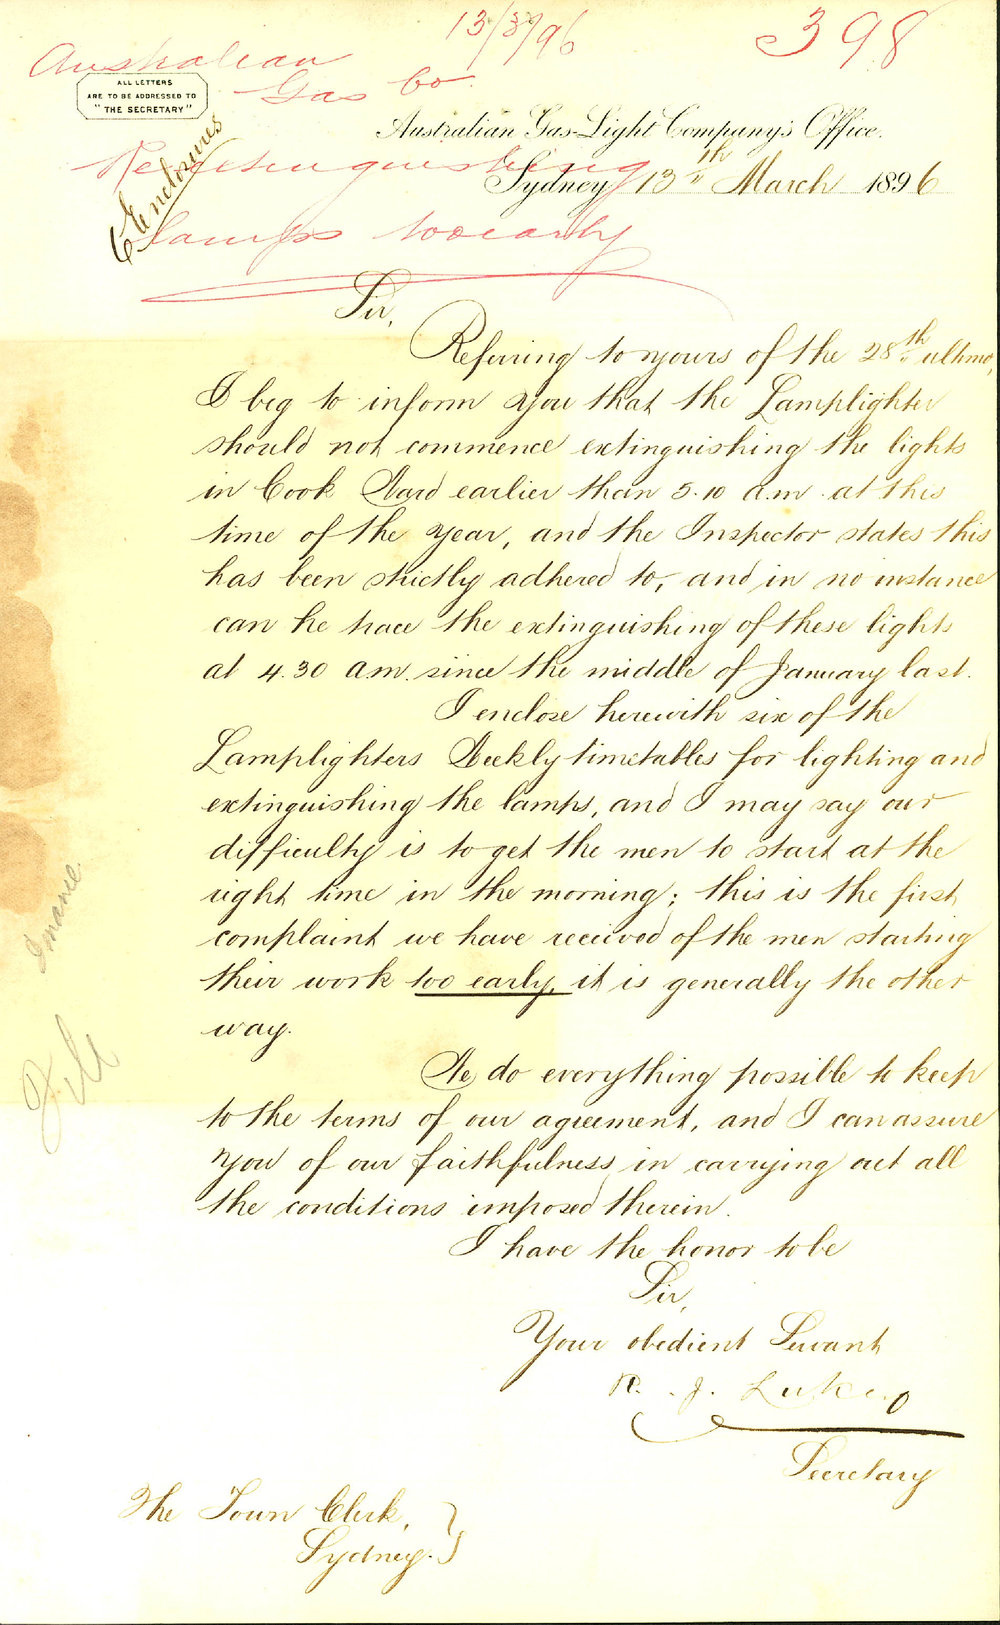 13/3/96
398
Australian
Gas Co
ALL LETTERS
ARE TO BE ADDRESSED TO
"THE SECRETARY"
Australian Gas-Light Company's Office.
Re extinguishing
Sydney 13th March 1896
6 Enclosures
lamps too early
Sir,
Referring to yours of the 28th ultimo,
I beg to inform you that the Lamplighter
should not commence extinguishing the lights
in Cook Ward earlier than 5.10 a.m. at this
time of the year, and the Inspector states this
has been strictly adhered to, and in no instance
can he trace the extinguishing of these lights
at 4.30 a.m. since the middle of January last.
I enclose herewith six of the
Lamplighters Weekly timetables for lighting and
extinguishing the lamps, and I may say our
difficulty is to get the men to start at the
right time in the morning; this is the first
complaint we have received of the men starting
their work too early, it is generally the other
way.
We do everything possible to keep
to the terms of our agreement, and I can assure
you of our faithfulness in carrying out all
the conditions imposed therein.
I have the honor to be
Sir,
Your obedient Servant
R. J. Lukey
Secretary
The Town Clerk,
Sydney.